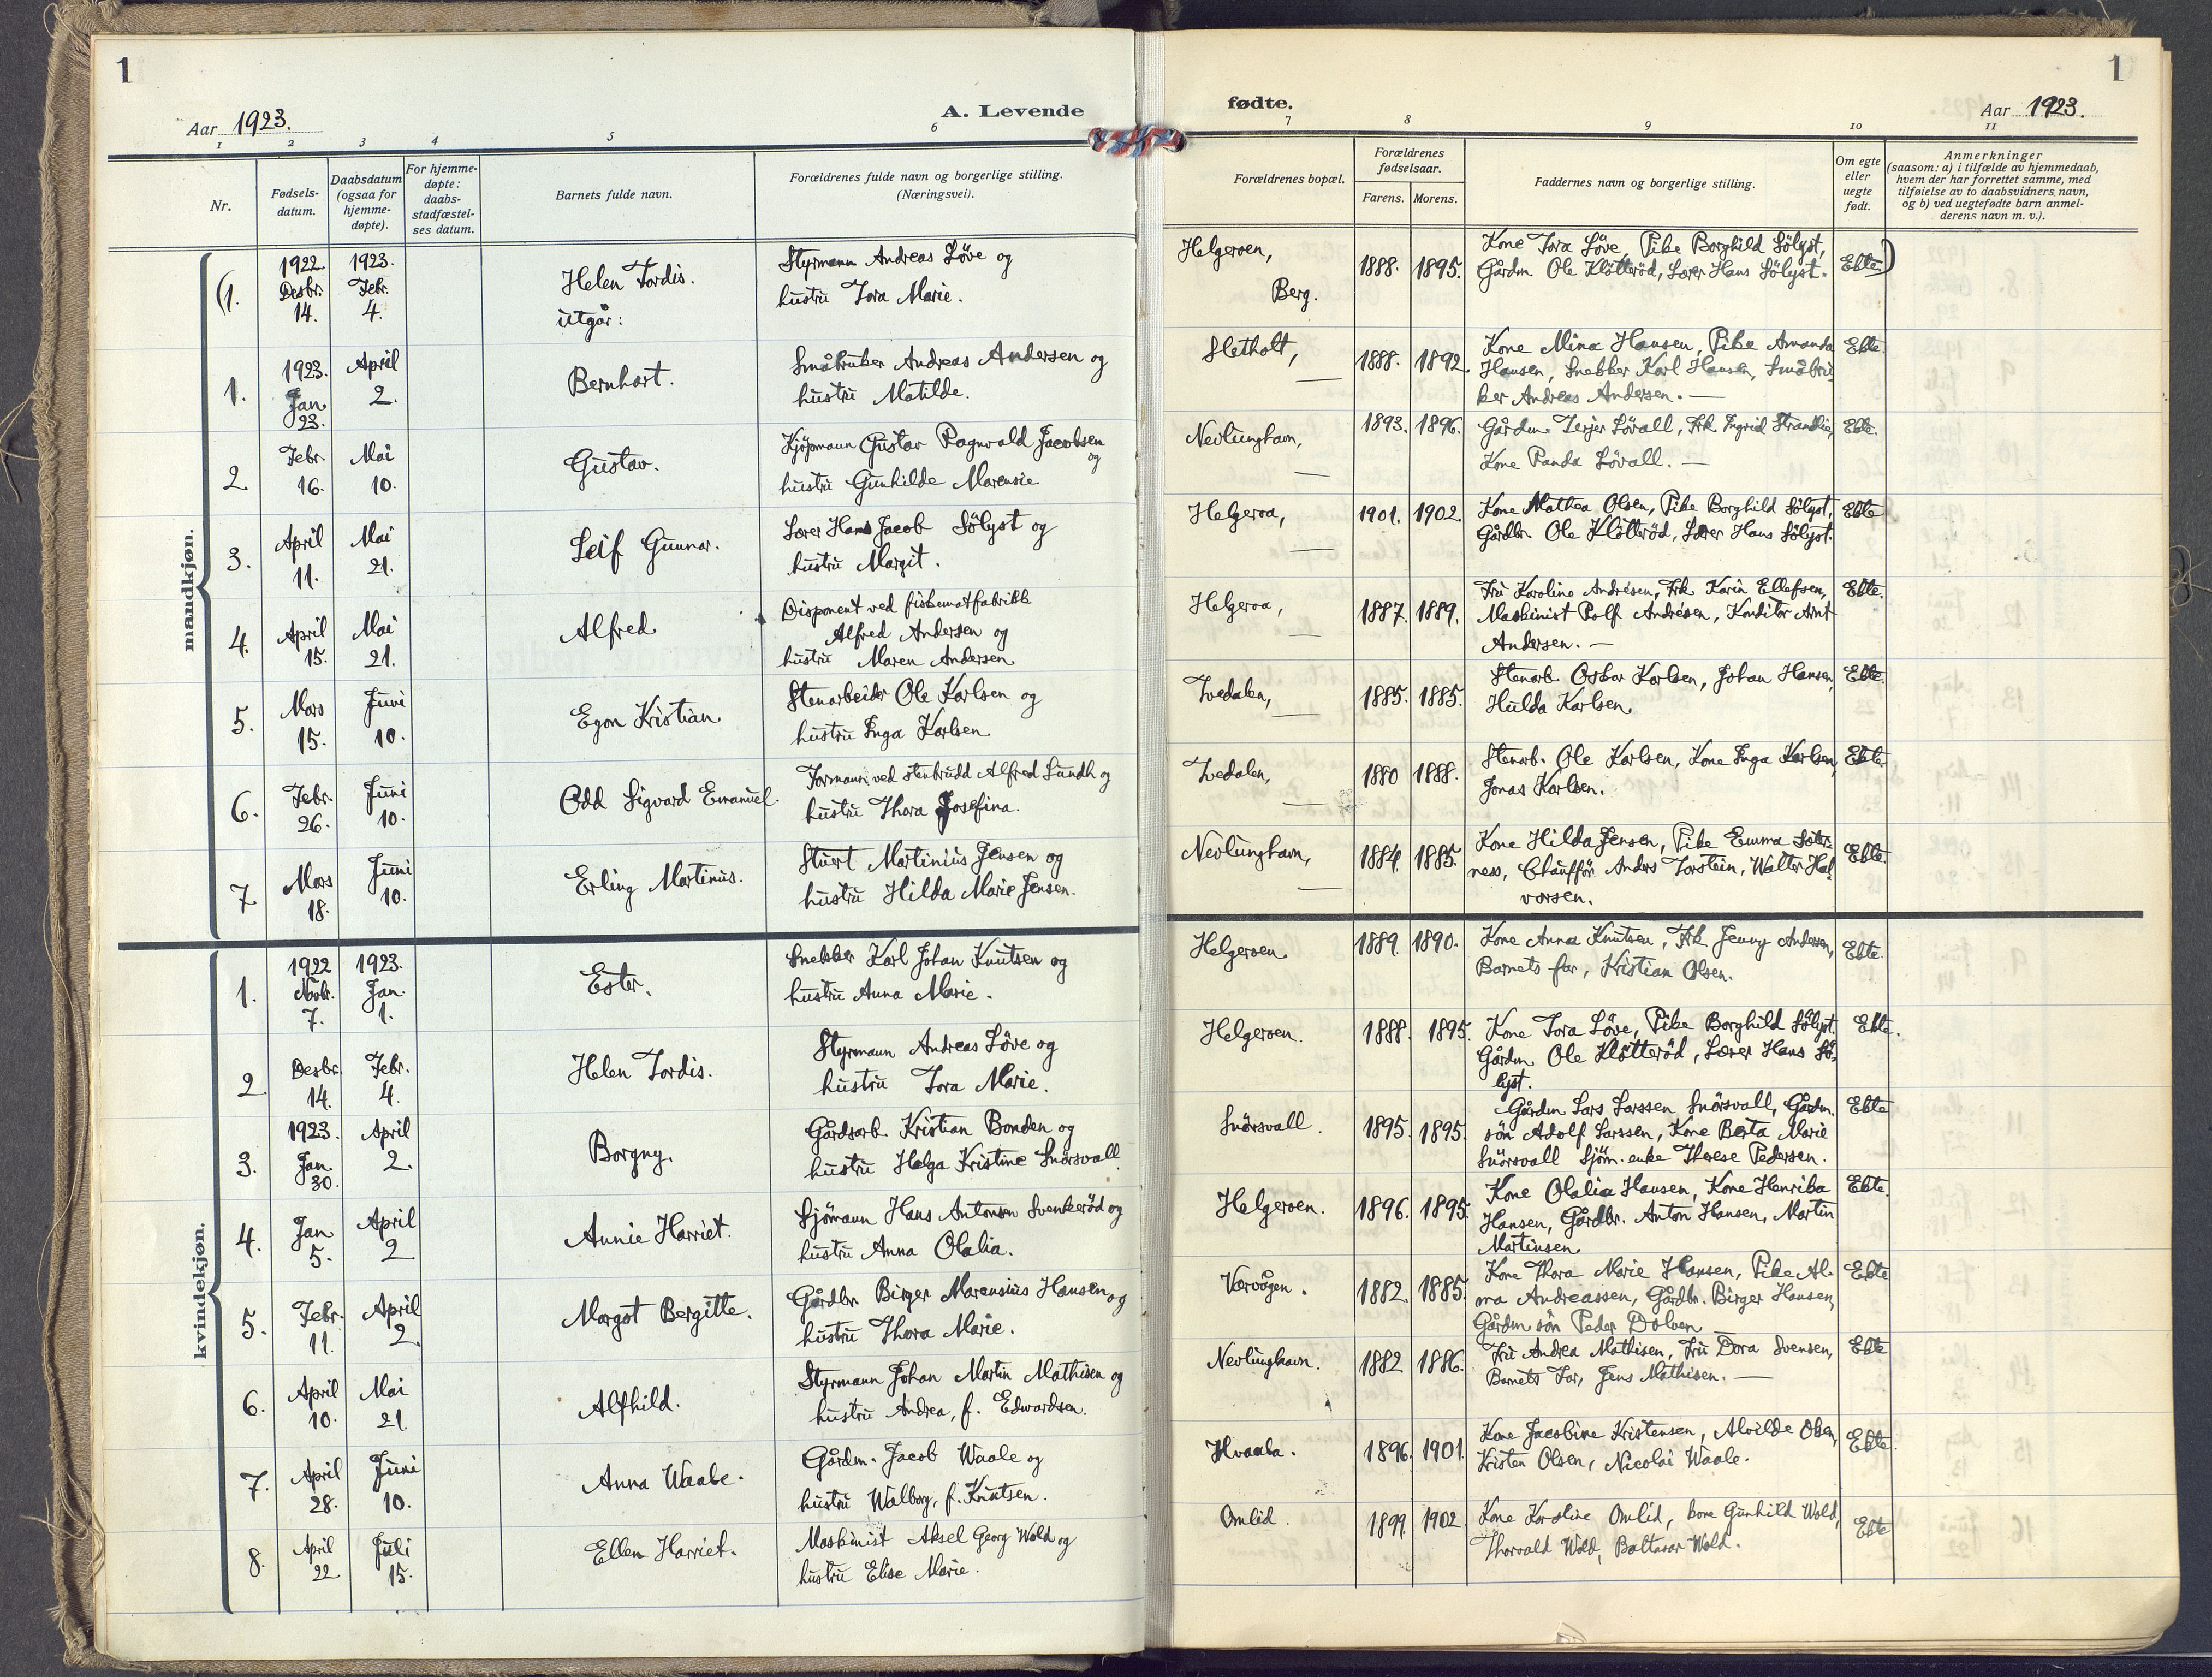 1
Aar 1923.
A. Levende
1 2 3 4 5 6
Nr.
Fødsels-
datum.
Daabsdatum
(ogsaa for
hjemme-
døpte).
For hjemme-
døpte:
daabs-
stadfæstel-
ses datum.
Barnets fulde navn.
Forældrenes fulde navn og borgerlige stilling.
(Næringsvei).
mandkjøn.
(1.
1922.
Desbr.
14.
1923.
Febr.
4.
Helen Tordis.
utgår:
Styrmann Andreas Löve og
hustru Tora Marie.
1.
1923.
Jan.
23.
April
2.
Bernhart.
Småbruker Andreas Andersen og
hustru Matilde.
2.
Febr.
16.
Mai
10.
Gustav.
Kjöpmann Gustav Ragnvald Jacobsen
og
hustru Gunhilde Marensie
3.
April
11.
Mai
21.
Leif Gunnar.
Lærer Hans Jacob Sölyst og
hustru Margit.
4.
April
15.
Mai
21.
Alfred
Disponent ved fiskematfabrikk
Alfred Andersen og
hustru Maren Andersen
5.
Mars
15.
Juni
10.
Egon Kristian.
Stenarbeider Ole Karlsen og
hustru Inga Karlsen
6.
Febr.
26.
Juni
10.
Odd Sigvard Emanuel.
Formann ved stenbrudd Alfred Lundh og
hustru Thora Josefina.
7.
Mars
18.
Juni
10.
Erling Martinus.
Stuert Martinius Jensen og
hustru Hilda Marie Jensen.
kvindekjøn.
1.
1922
Nobr.
7.
1923.
Jan.
1.
Ester.
Snekker Karl Johan Knutsen og
hustru Anna Marie.
2.
Desbr.
14.
Febr.
4.
Helen Tordis.
Styrmann Andreas Löve og
hustru Tora Marie.
3.
1923.
Jan.
30.
April
2.
Borgny.
Gårdsarb. Kristian Bonden og
hustru Helga Kristine Snörsvall
4.
Jan
5.
April
2
Annie Harriet.
Sjömann Hans Antonsen Svenkeröd og
hustru Anna Olalia.
5.
Febr.
11.
April
2.
Margot Bergitte.
Gårdbr. Birger Marensius Hansen og
hustru Thora Marie.
6.
April
10.
Mai
21.
Alfhild.
Styrmann Johan Martin Mathisen og
hustru Andrea, f. Edwardsen.
7.
April
28.
Juni
10.
Anna Waale.
Gårdm. Jacob Waale og
hustru Walborg, f. Knutsen.
8.
April
22
Juli
15.
Ellen Harriet.
Maskinist Aksel Georg Wold og
hustru Elise Marie.
fødte.
Aar 1923.
1
7 8 9 10 11
Forældrenes bopæl.
Forældrenes
fødselsaar.
Farens. Morens.
Faddernes navn og borgerlige stilling.
Om egte
eller
uegte
født.
Anmerkninger
(saasom: a) i tilfælde av hjemmedaab,
hvem der har forrettet samme, med
tilføielse av to daabsvidners navn,
og b) ved uegtefødte barn anmel-
derens navn m. v.).
Helgeroen,
Berg.
1888. 1895.
Kone Tora Löve, Pike Borghild Sölyst,
Gårdm. Ole Klötteröd, Lærer Hans Sölyst.
Ekte)
Sletholt,
1888. 1892.
Kone Mina Hansen, Pike Amanda
Hansen, Snekker Karl Hansen, Småbru-
ker Andreas Andersen. —
Ekte.
Nevlunghavn,
1893. 1896.
Gårdm. Terjer Lövall, Frk. Ingrid
Kone Panda Lövall. —
Ekte.
Helgeroa,
1901. 1902.
Kone Mathea Olsen, Pike Borghild Sölyst,
Gårdbr. Ole Klötteröd, Lærer Hans Sölyst.
Ekte
Helgeroa,
1887. 1889.
Fru Karoline Andrésen, Frk. Karin Ellefsen,
Maskinist Rolf Andrésen, Konditor Arnt
Andersen. —
Ekte.
Tvedalen,
1885. 1885.
Stenarb. Oskar Karlsen, Johan Hansen,
Hulda Karlsen.
Ekte.
Tvedalen,
1880 1888.
Stenarb. Ole Karlsen, Kone Inga Karlsen,
Jonas Karlsen.
Ekte.
Nevlunghavn,
1884. 1885.
Kone Hilda Jensen, Pike Emma
ness, Chaufför Anders Torstein, Walter Hal-
vorsen.
Ekte.
Helgeroen
1889. 1890.
Kone Anna Knutsen, Frk. Jenny Andersen,
Barnets far, Kristian Olsen.
Ekte.
Helgeroen.
1888. 1895.
Kone Tora Löve, Pike Borghild Sölyst.
Gårdm. Ole Klötteröd, Lærer Hans Sö-
lyst.
Ekte.
Snörsvall.
1895. 1895.
Gårdm. Lars Larssen Snörsvall, Gårdm.
sön Adolf Larssen, Kone Berta Marie
Snörsvall Sjöm. enke Therese Pedersen.
Ekte
Helgeroen.
1896. 1895.
Kone Olalia Hansen, Kone Henrika
Hansen, Gårdbr. Anton Hansen, Martin
Martinsen.
Ekte.
Værvågen.
1882. 1885.
Kone Thora Marie Hansen, Pike Al-
ma Andreassen, Gårdbr. Birger Hansen,
Gårdm. sön Peder Dolven
Ekte
Nevlunghavn.
1882 1886.
Fru Andrea Mathisen, Fru Dora Svensen,
Barnets Far, Jens Mathisen. —
Ekte
Hvaala.
1896. 1901.
Kone Jacobine Kristensen, Alvilde Olsen,
Kristen Olsen, Nicolai Waale.
Ekte.
Omlid.
1899. 1902.
Kone Karoline Omlid, kone Gunhild Wold,
Thorvald Wold, Baltasar Wold.
Ekte